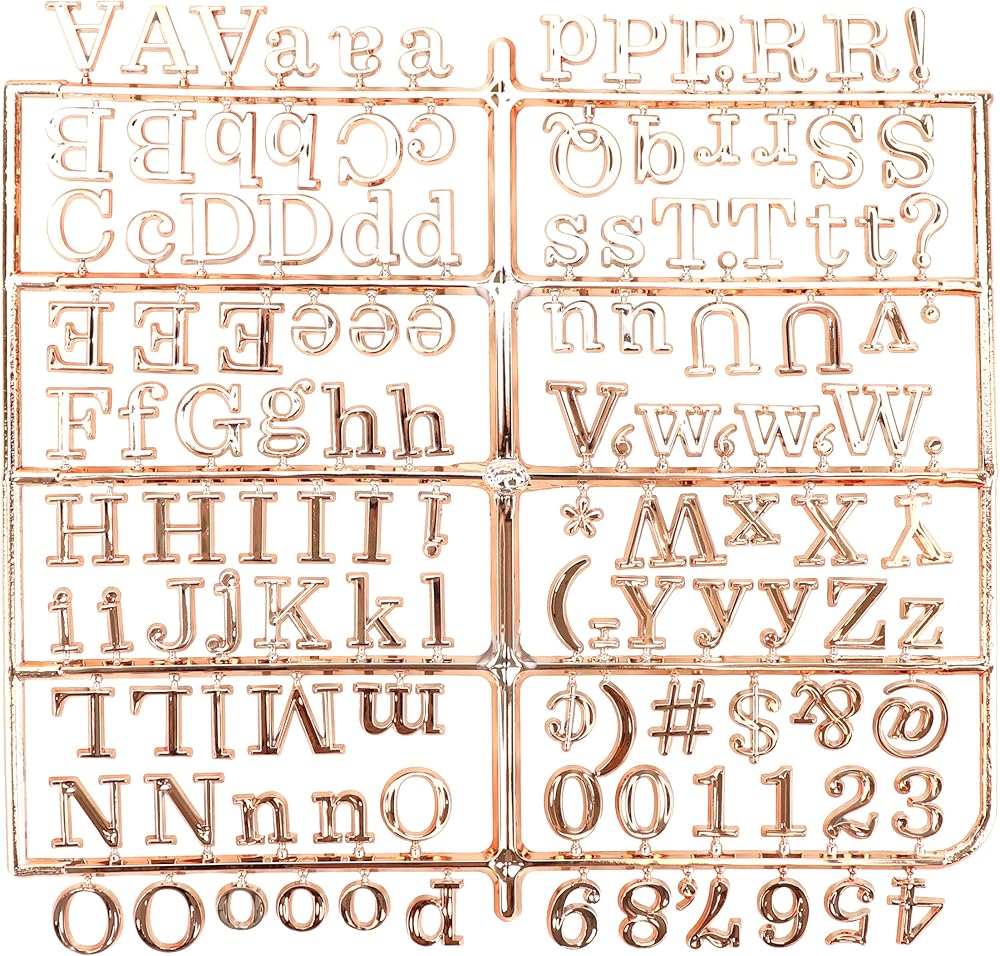 A A A a a a
p P P . R R !
B B b b C c
Q q r r S S
C c D D d d
s s T . T t t ?
E E E e e e
u u U U v '
F f G g h h
V , w , w , W .
H H I I I !
* W x X Y
i i J j K k l
( - Y y y Z z
L L l M m
¢ ) # $ & @
N N n n O
0 0 1 1 2 3
O O o o o p
6 8 ' 7 9 5 4